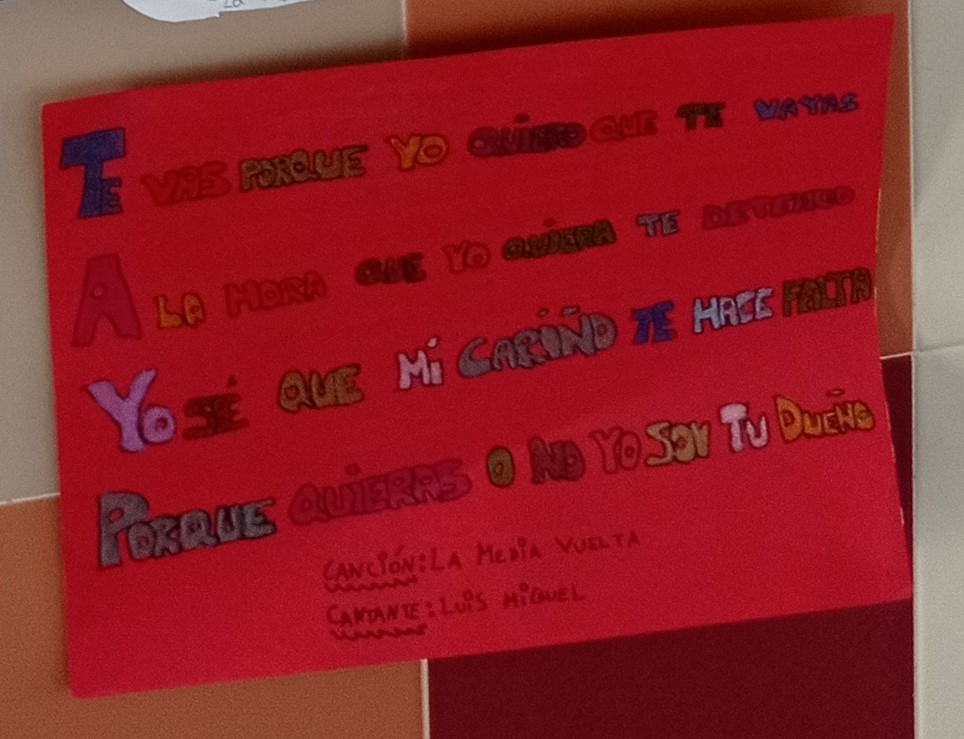 TE VAS PORQUE YO QUIERO QUE TE VAYAS
A LA HORA QUE YO QUIERA TE DETENGO
YO SÉ QUE MÍ CARIÑO TE HACE FALTA
PORQUE QUIERAS O NO YO SOY TU DUEÑO
CANCIÓN: LA MEDIA VUELTA
CANTANTE: LUIS MIGUEL